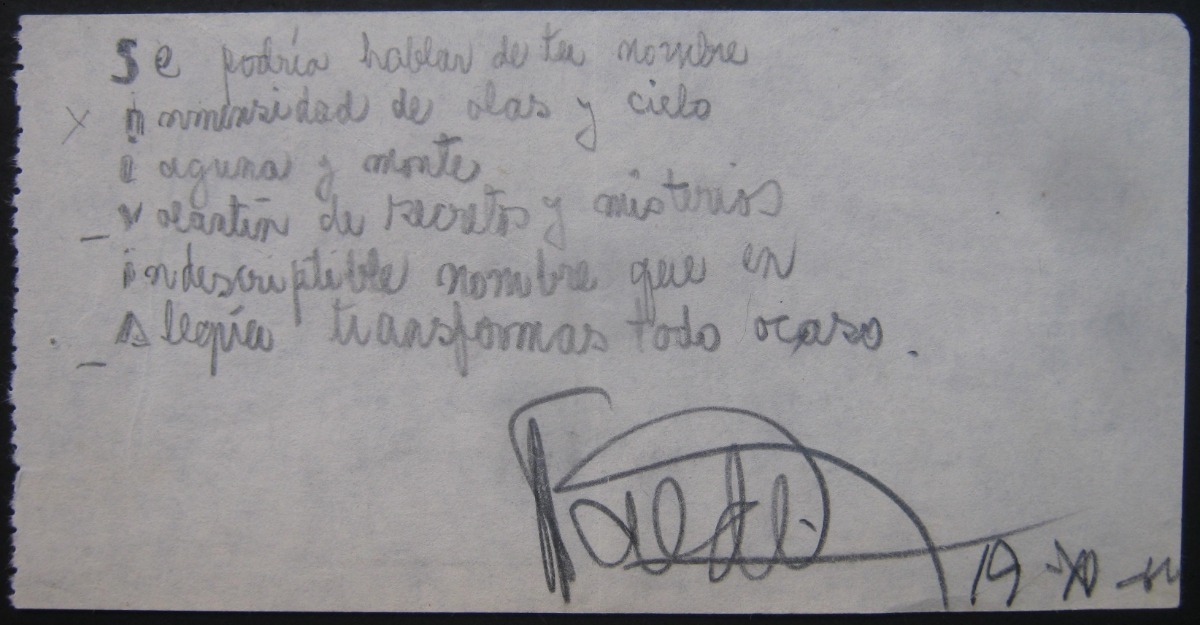 Se podría hablar de tu nombre
x inmensidad de olas y cielo
laguna y monte
volantín de secretos y misterios
indescriptible nombre que en
alegría transformas todo ocaso.
19